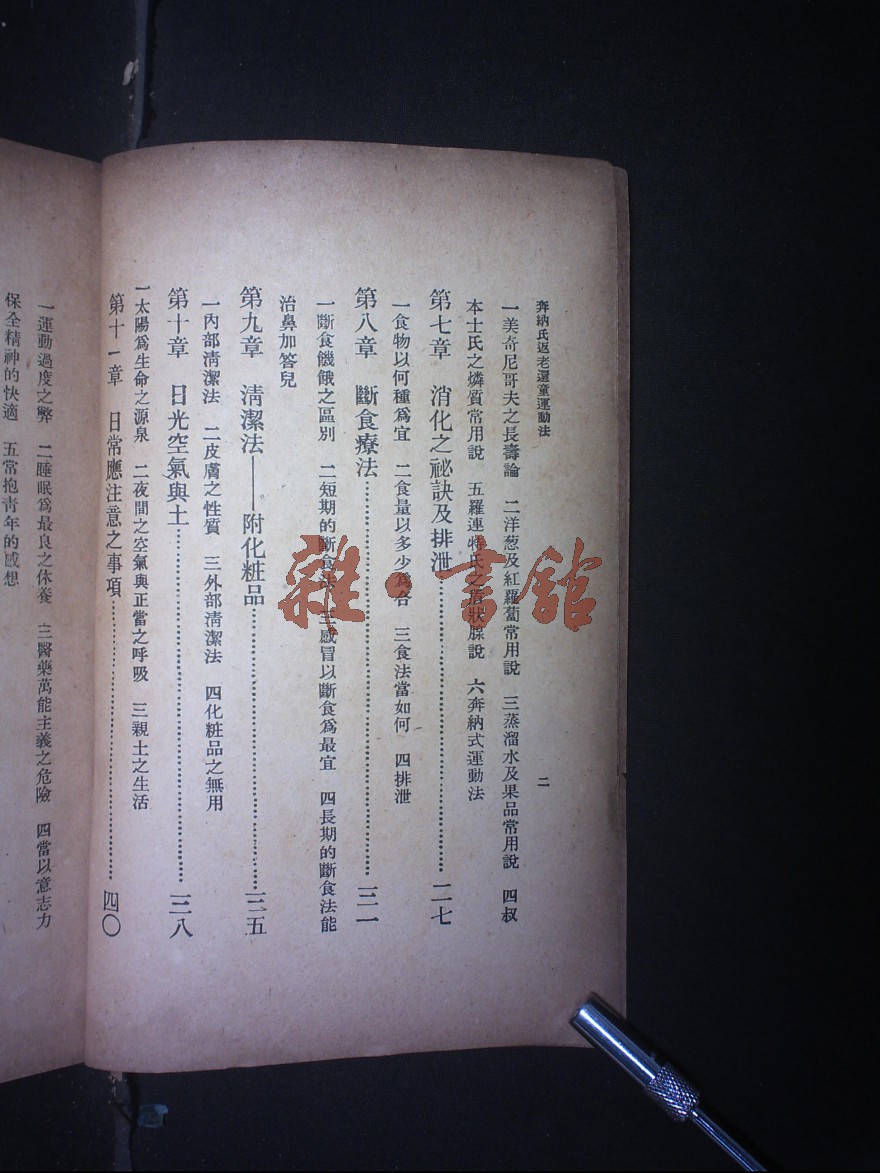 奔納氏返老還童運動法
二
一美奇尼哥夫之長壽論 二洋葱及紅蘿蔔常用說 三蒸溜水及果品常用說 四叔
本士氏之燐質常用說 五羅連特氏之盾狀腺說 六奔納式運動法
第七章 消化之祕訣及排泄……………二七
一食物以何種爲宜 二食量以多少爲合 三食法當如何 四排泄
第八章 斷食療法……………三一
一斷食饑餓之區別 二短期的斷食法 三感冒以斷食爲最宜 四長期的斷食法能
治鼻加答兒
第九章 淸潔法——附化粧品……………三五
一內部淸潔法 二皮膚之性質 三外部淸潔法 四化粧品之無用
第十章 日光空氣與土……………三八
一太陽爲生命之源泉 二夜間之空氣與正當之呼吸 三親土之生活
第十一章 日常應注意之事項……………四〇
一運動過度之弊 二睡眠爲最良之休養 三醫藥萬能主義之危險 四當以意志力
保全精神的快適 五常抱靑年的感想
雜·書館